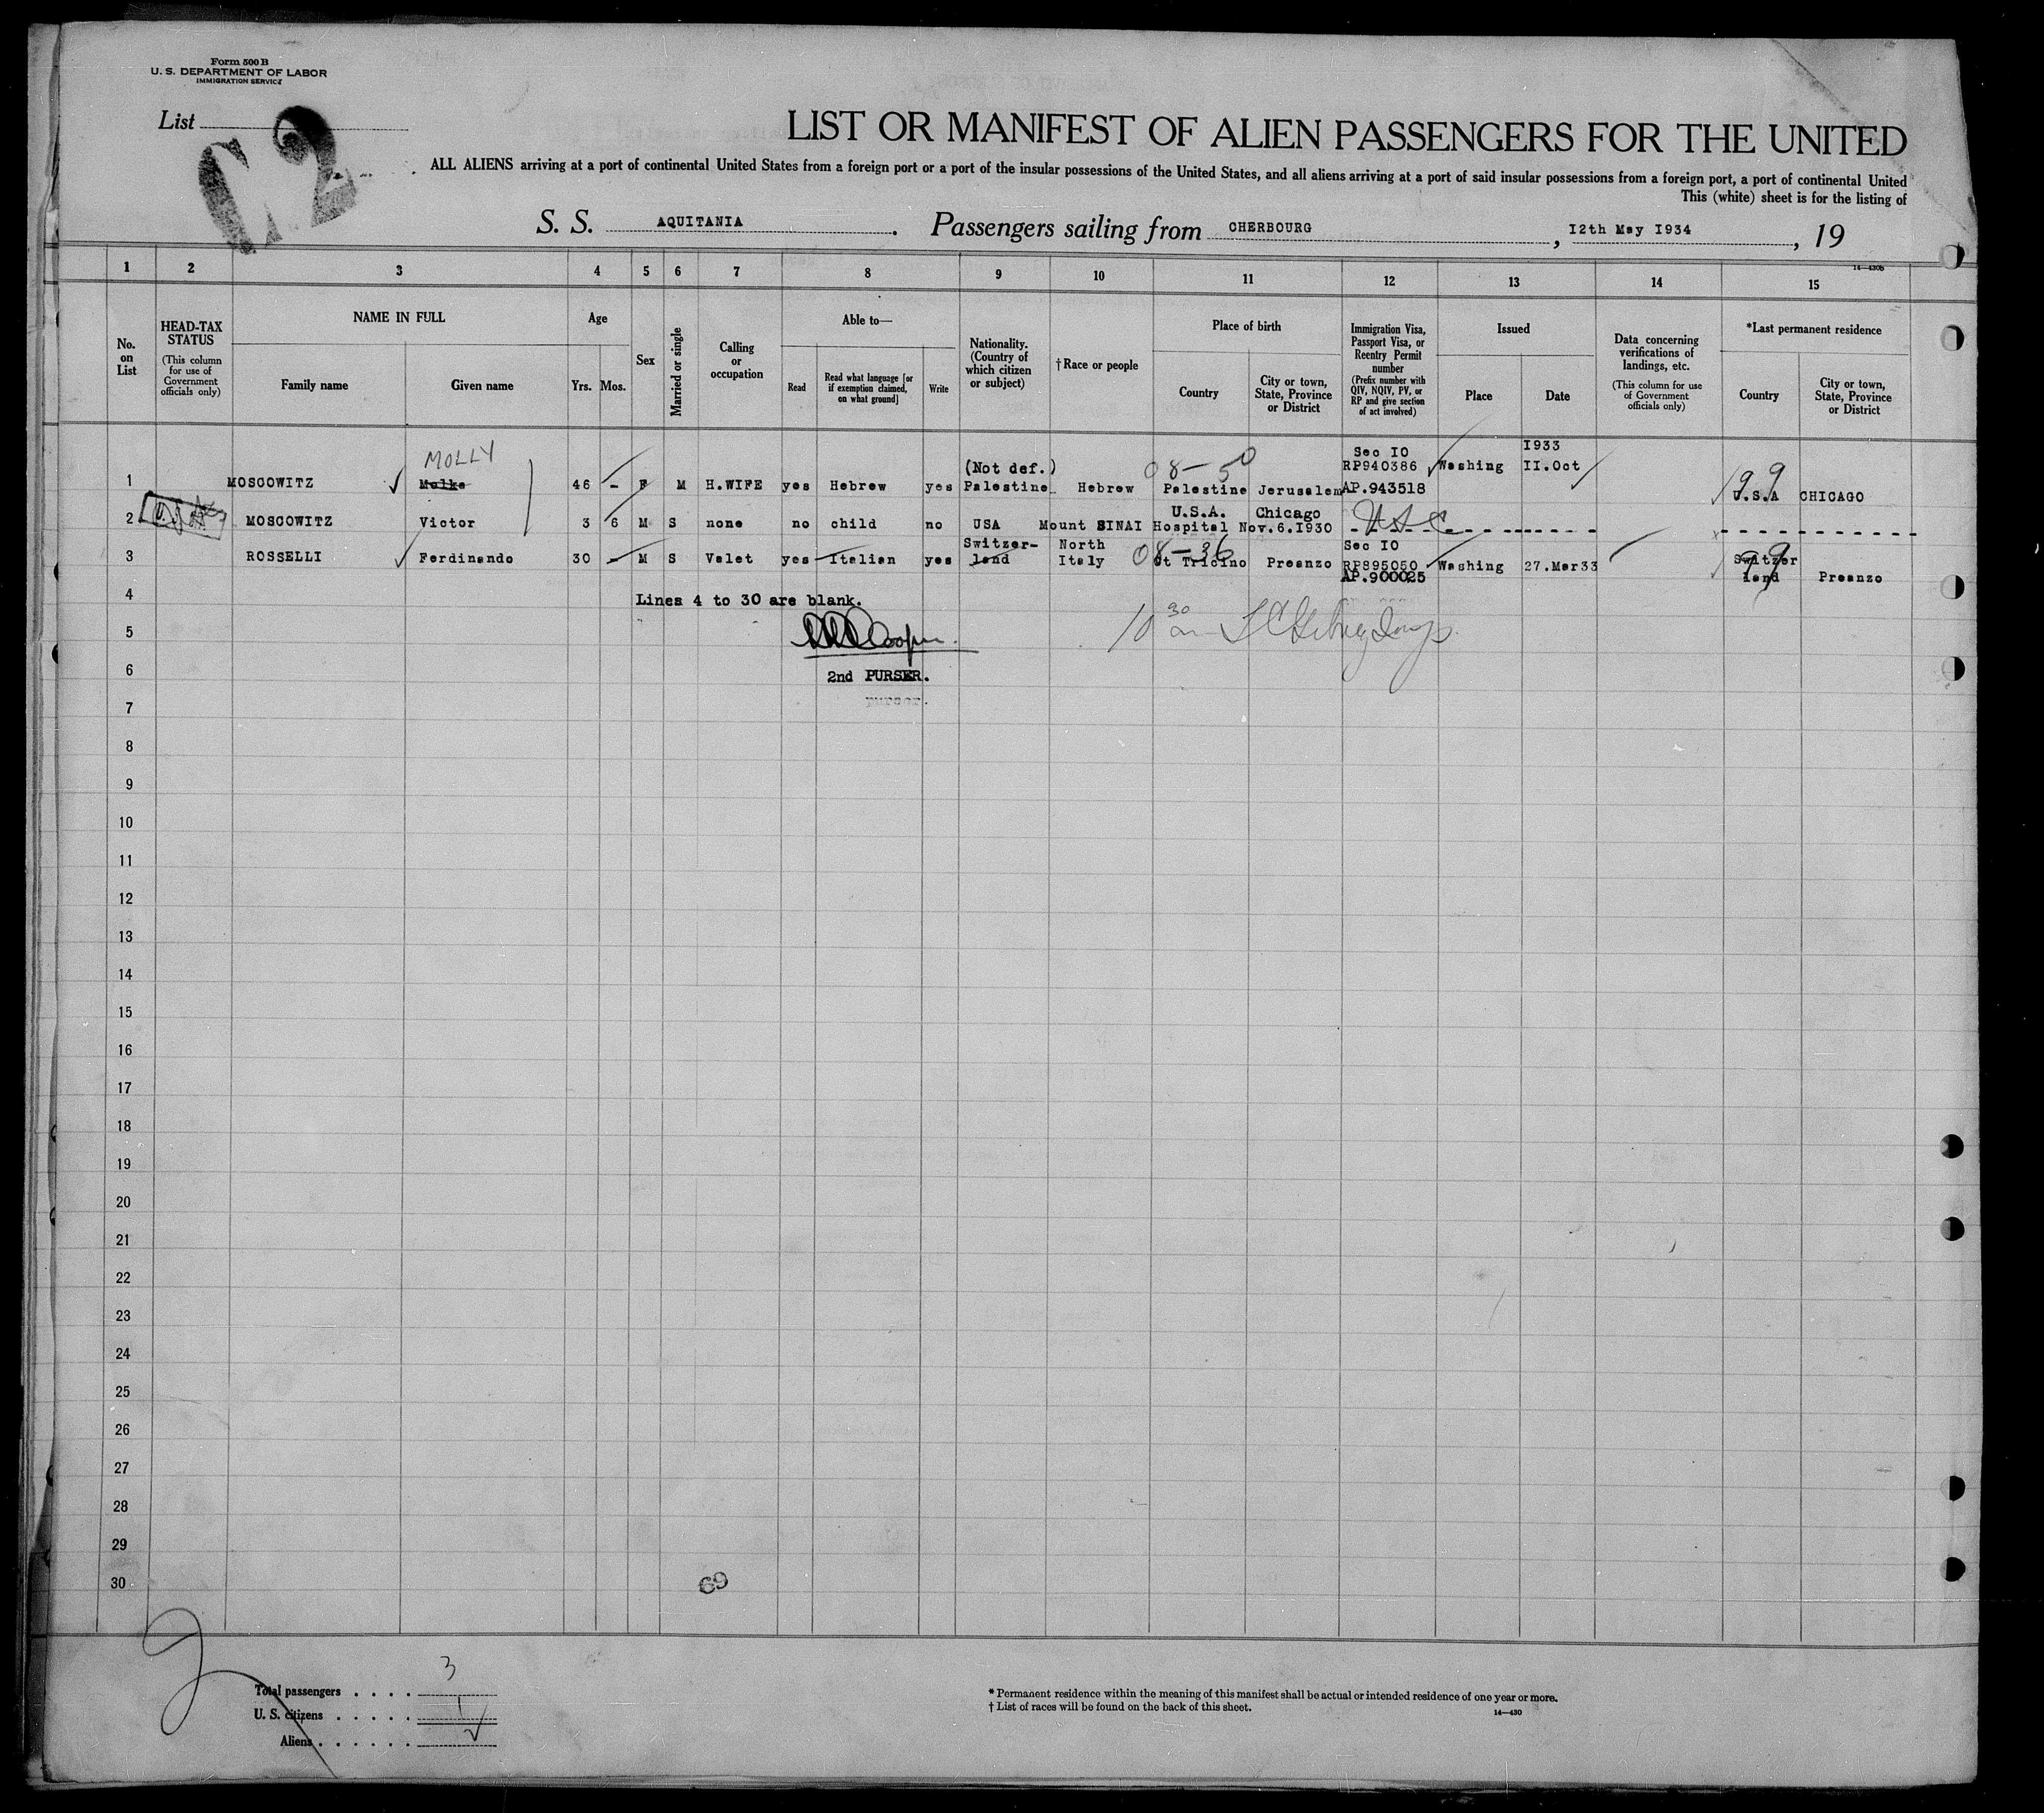 Form 500 B
U. S. DEPARTMENT OF LABOR
IMMIGRATION SERVICE
List
C2
LIST OR MANIFEST OF ALIEN PASSENGERS FOR THE UNITED
ALL ALIENS arriving at a port of continental United States from a foreign port or a port of the insular possessions of the United States, and all aliens arriving at a port of said insular possessions from a foreign port, a port of continental United
This (white) sheet is for the listing of
S. S. AQUITANIA. Passengers sailing from CHERBOURG, I2th May I934, 19
14—430b
1 2 3 4 5 6 7 8 9 10 11 12 13 14 15
No. on List
HEAD-TAX STATUS
(This column for use of Government officials only)
NAME IN FULL
Family name
Given name
Age
Yrs. Mos.
Sex
Married or single
Calling or occupation
Able to—
Read
Read what language [or if exemption claimed, on what ground]
Write
Nationality. (Country of which citizen or subject)
† Race or people
Place of birth
Country
City or town, State, Province or District
Immigration Visa, Passport Visa, or Reentry Permit number
(Prefix number with QIV, NQIV, PV, or RP and give section of act involved)
Issued
Place
Date
Data concerning verifications of landings, etc.
(This column for use of Government officials only)
*Last permanent residence
Country
City or town, State, Province or District
MOLLY (Not def.) 08-50 Sec IO I933
1 MOSCOWITZ Malka 46 - F M H.WIFE yes Hebrew yes Palestine Hebrew Palestine Jerusalem RP940386 AP.943518 Washing II.Oct 99 U.S.A CHICAGO
U.S.A. Chicago
2 MOSCOWITZ Victor 3 6 M S none no child no USA Mount SINAI Hospital Nov.6.I930 USC
Switzer- North 08-36 Sec IO
3 ROSSELLI Ferdinando 30 - M S Valet yes Italian yes land Italy Ct Tricino Preanzo RP895050 AP.900025 Washing 27.Mar33 99 Switzer land Preanzo
4 Lines 4 to 30 are blank.
10 30
5 Cooper
6 2nd PURSER.
7 purser.
8
9
10
11
12
13
14
15
16
17
18
19
20
21
22
23
24
25
26
27
28
29
30 69
Total passengers . . . . 3
U. S. citizens . . . . . 1
Aliens . . . . . .
* Permanent residence within the meaning of this manifest shall be actual or intended residence of one year or more.
† List of races will be found on the back of this sheet.
14—430